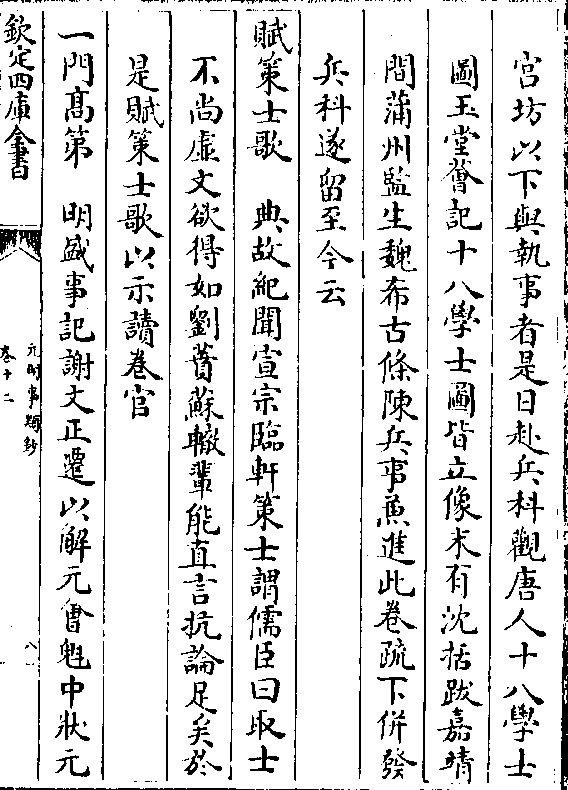 宫坊以下與執事者是日赴兵科觀唐人十八學士
圖玉堂薈記十八學士圖皆立像末有沈括跋嘉靖
間蒲州監生魏希古條陳兵事魚進此卷疏下併發
兵科遂留至今云
賦策士歌　典故紀聞宣宗臨軒策士謂儒臣曰取士
不尚虚文欲得如劉蕡蘇轍輩能直言抗論足矣於
是賦策士歌以示讀卷官
一門髙第　明盛事記謝文正遷以解元會魁中狀元
欽定四庫全書
元明事類鈔
卷十二
八